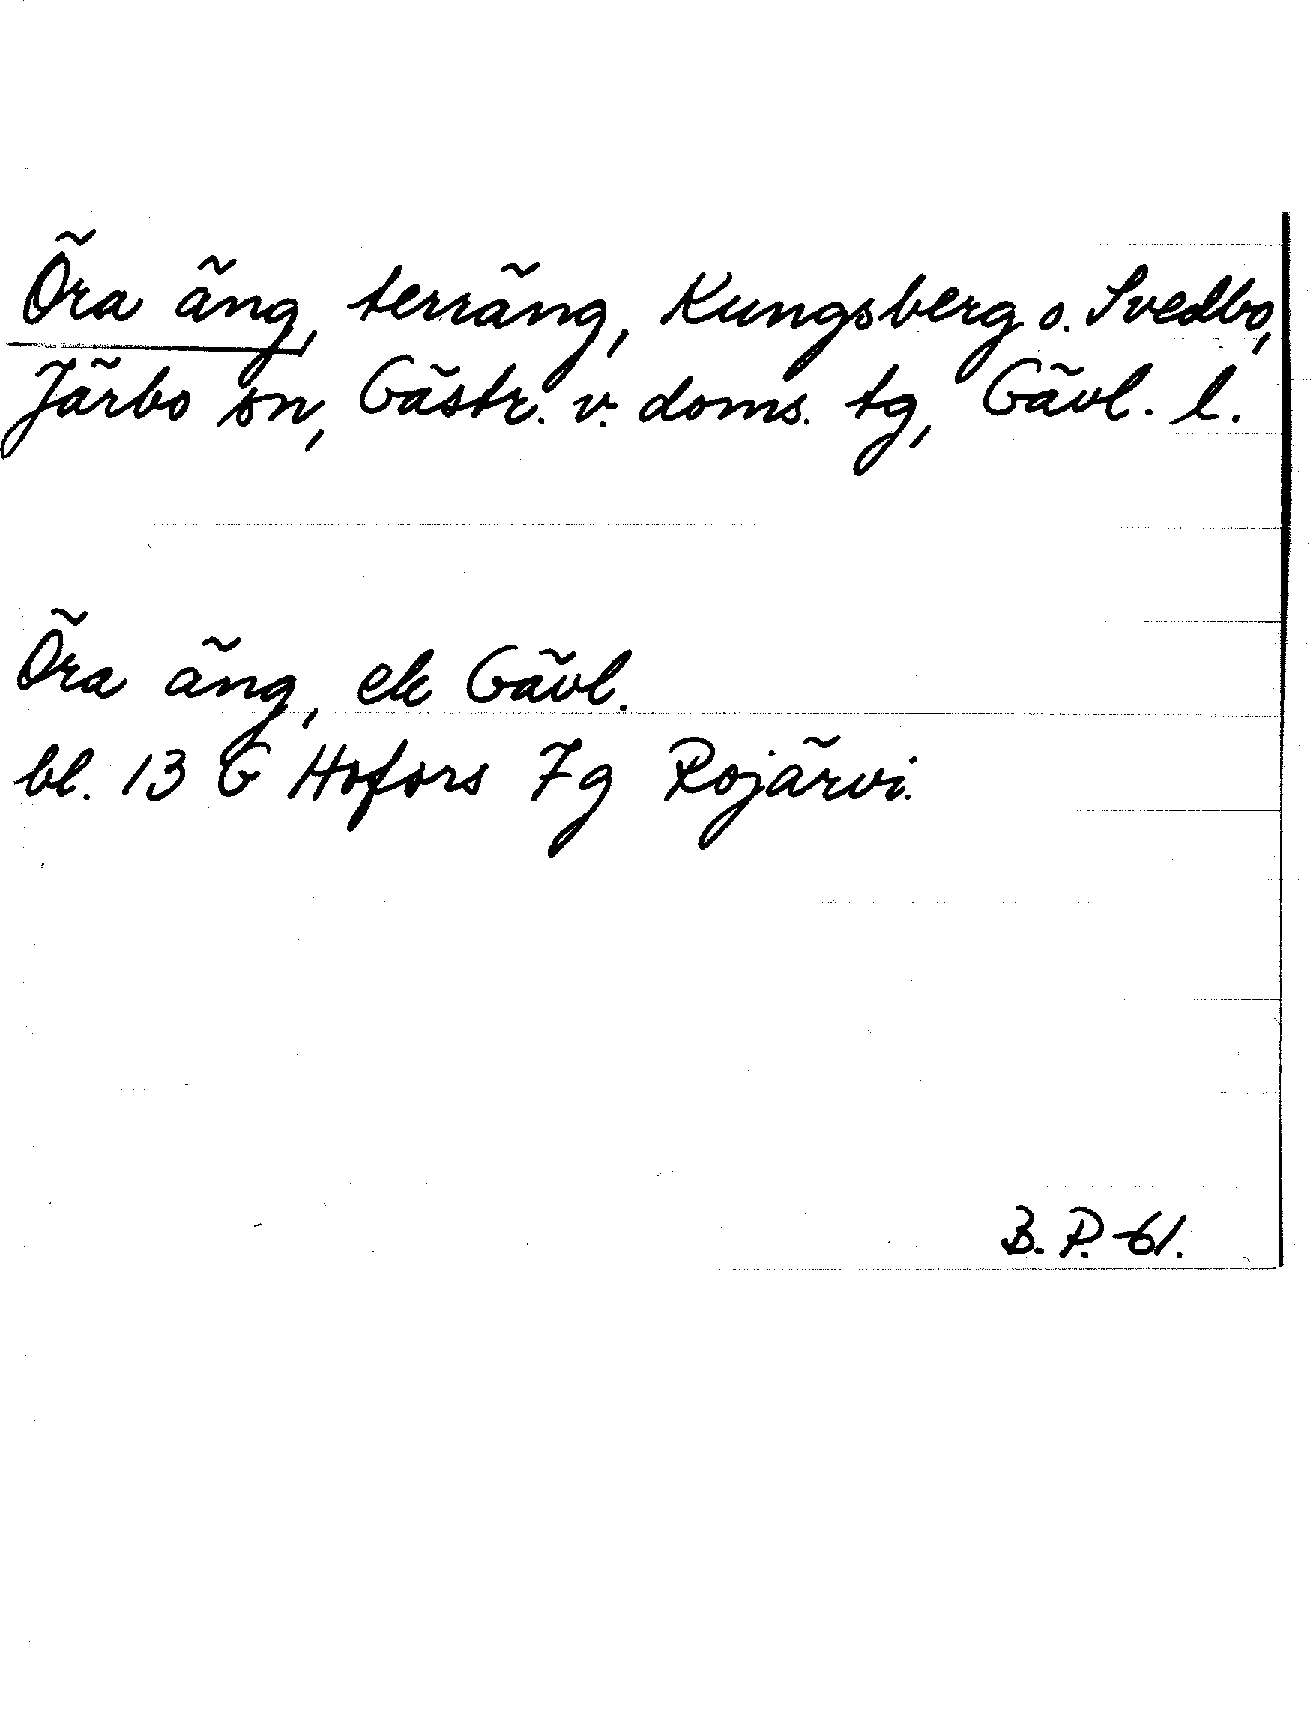 Öra äng, terräng, Kungsberg o. Svedbo,
Järbo sn, Gästr. v. doms. tg, Gävl. l.
Öra äng, ek Gävl.
bl. 13 G Hofors 7g Rojärvi.
B.P.-61.